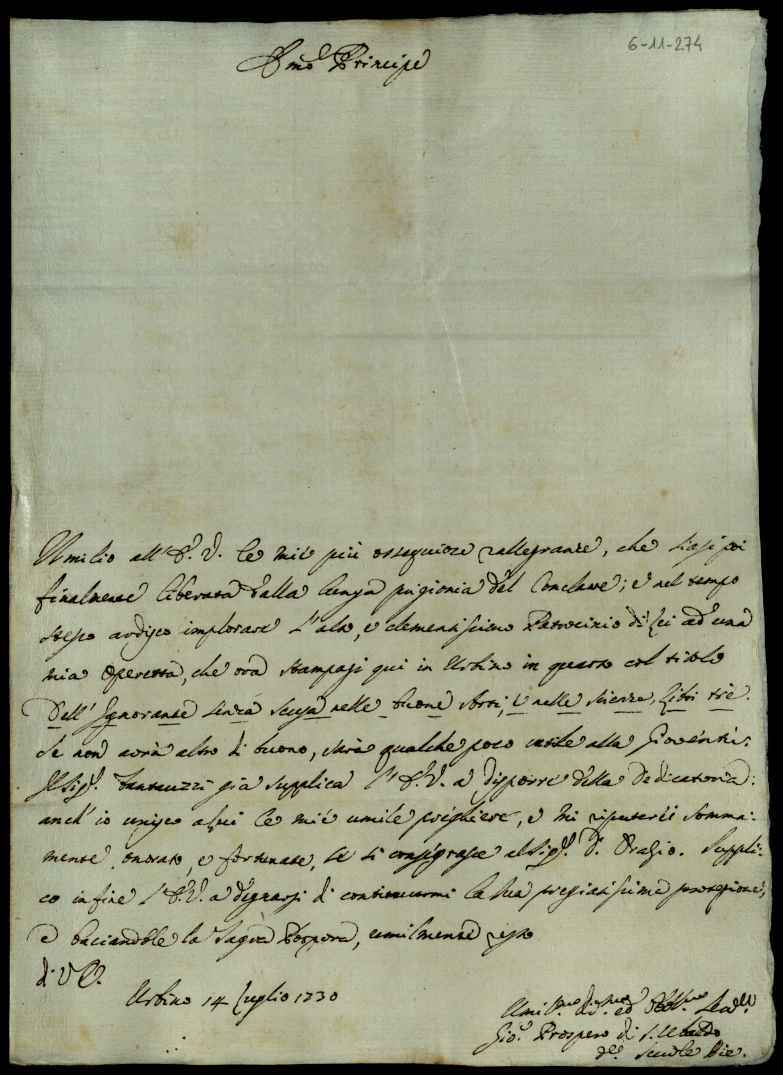 6-11-274
Emo Principe
Umilio all'E. V. le mie più ossequiose rallegranze, che siasi poi
finalmente liberata dalla lunga prigionia del Conclave; e nel tempo
stesso ardisco implorare l'alto, e clementissimo Patrocinio di Lei ad una
mia operetta, che ora stampasi qui in Urbino in quarto col titolo
Dell'Ignorante senza scusa nelle buone Arti, e nelle scienze, Libri tre.
Se non avrà altro di buono, sarà qualche poco utile alla Gioventù.
Il Sigr. Fantauzzi già supplica l'E. V. a disporre della dedicatoria:
anch'io unisco a lui le mie umile preghiere, e mi reputerei somma-
mente onorato, e fortunato, se si consegrasse al Sigr. D. Orazio. Suppli-
co in fine l'E. V. a degnarsi di continuarmi la sua pregiatissima protezione,
e baciandole la Sagra Porpora, umilmente resto
di V E.
Urbino 14 Luglio 1730
Umilmo divmo ed Obblmo
Gio. Prospero di S. Ubaldo
delle Scuole Pie.